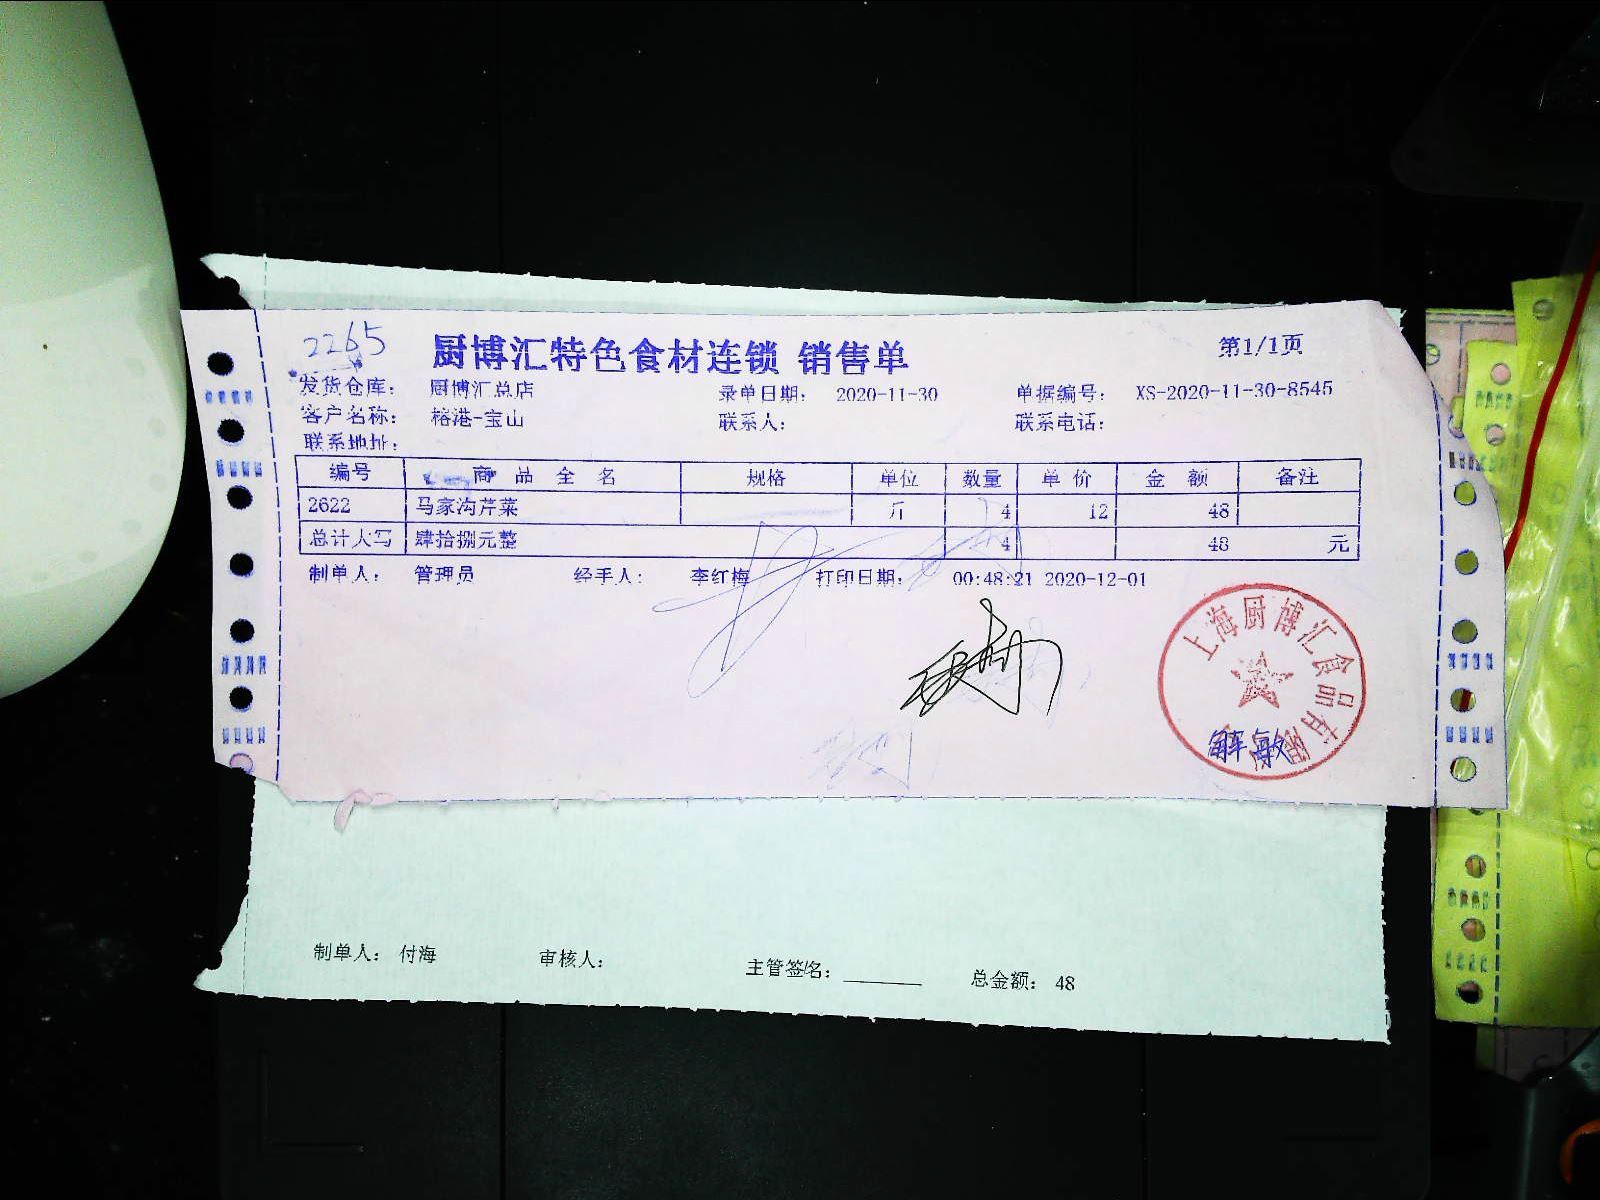 2265
厨博汇特色食材连锁 销售单 第1/1页
发货仓库： 厨博汇总店 录单日期： 2020-11-30 单据编号： XS-2020-11-30-8545
客户名称： 榕港-宝山 联系人： 联系电话：
联系地址：
编号 商品全名 规格 单位 数量 单价 金额 备注
2622 马家沟芹菜 斤 4 12 48
总计大写 肆拾捌元整 4 48 元
制单人： 管理员 经手人： 李红梅 打印日期： 00:48:21 2020-12-01
上海厨博汇食品有限公司
解敏
制单人： 付海 审核人： 主管签名： 总金额： 48